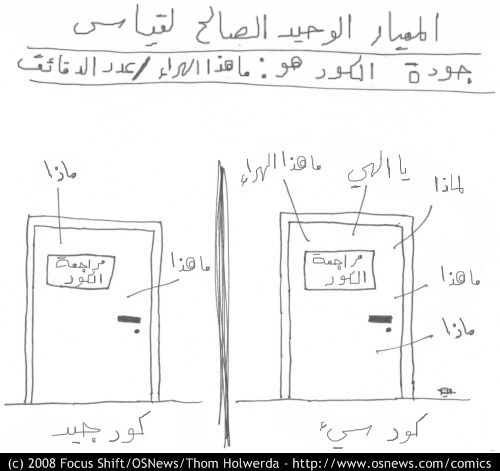 المعيار الوحيد الصالح لقياس
جودة الكود هو: ما هذا الهراء/عدد الدقائق
ما هذا الهراء
يا الهي
لماذا
مراجعة
الكود
ما هذا
ماذا
كود سيء
ماذا
مراجعة
الكود
ما هذا
كود جيد
(c) 2008 Focus Shift/OSNews/Thom Holwerda - http://www.osnews.com/comics